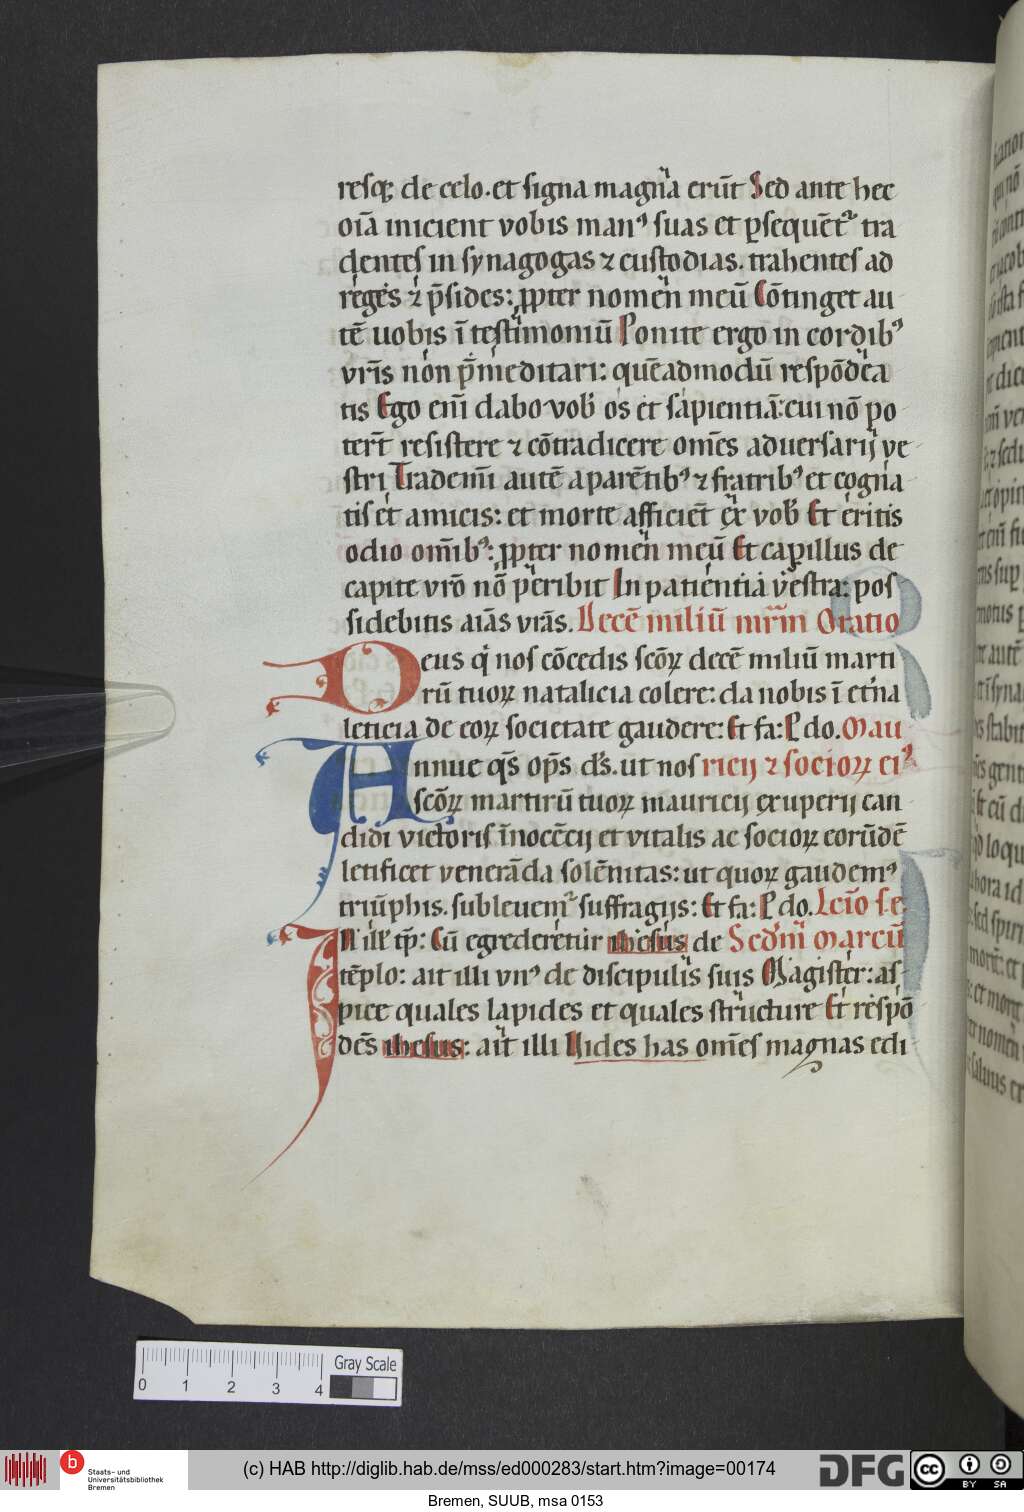 resq; de celo. et signa magna erūt Sed ante hec
oīa inicient vobis manꝰ suas et ꝑsequēt᷑ tra
dentes in synagogas ⁊ custodias. trahentes ad
reges ⁊ p̄sides: ꝓpter nomen meū Cōtinget au
tē uobis ī testimoniū Ponite ergo in cordibꝰ
vr̄is non p̄meditari: quēadmodū respōdea
tis Ego em̄ dabo vob̄ os et sapientiā: cui nō po
tert̄ resistere ⁊ cōtradicere om̄es aduersarij ve
stri Trademī autē a parētibꝰ ⁊ fratribꝰ et cogna
tis et amicis: et morte afficiēt ex vob̄ Et eritis
odio om̄ibꝰ: ꝓpter nomen meū Et capillus de
capite vrō nō peribit In patientia vestra: pos
sidebitis aīas vrās. Decē miliū mr̄m Oratio
Deus q̇ nos cōcedis scōꝝ decē miliū marti
rū tuoꝝ natalicia colere: da nobis ī et̄na
leticia de eoꝝ societate gaudere: Et fa: P do. Mau
Annue qs̄ op̄s ds̄. ut nos ricij ⁊ socioꝝ eiꝰ
scōꝝ martirū tuoꝝ mauricij exuperij can
didi victoris īnocēcij et vitalis ac socioꝝ eorūdē
letificet venerāda solēnitas: ut quoꝝ gaudemꝰ
triūphis. subleuem᷑ suffragijs: Et fa: P do. Lcīo s. e.
In ill̄ tp̄: Cū egrederetur ihesus de Scd̄m marcū
tēplo: ait illi vnꝰ de discipulis suis Magister: as
pice quales lapides et quales structure Et respō
dēs ihesus: ait illi Uides has om̄es magnas edi
Gray Scale
0 1 2 3 4
b Staats- und
Universitätsbibliothek
Bremen
(c) HAB http://diglib.hab.de/mss/ed000283/start.htm?image=00174
DFG
cc BY SA
Bremen, SUUB, msa 0153